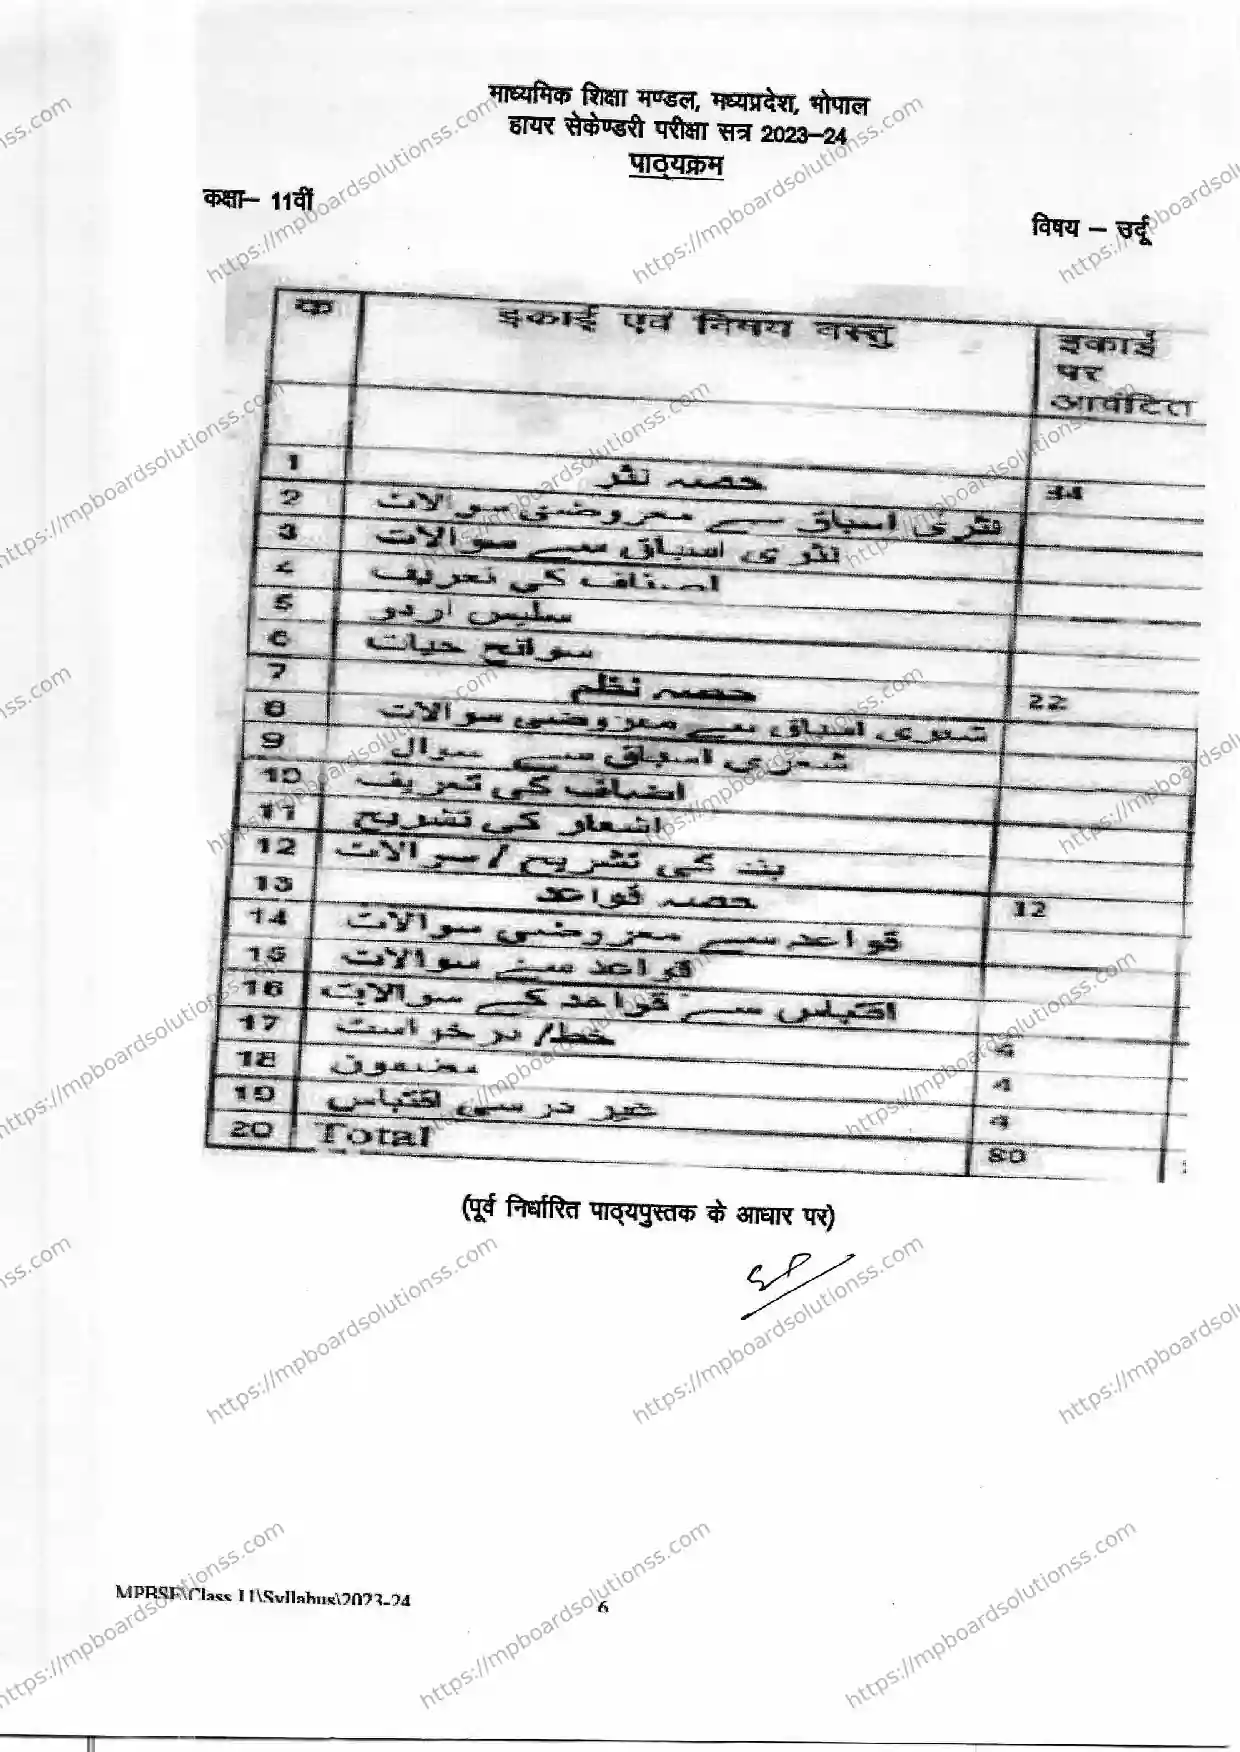 माध्यमिक शिक्षा मण्डल, मध्यप्रदेश, भोपाल
हायर सेकेण्डरी परीक्षा सत्र 2023-24
पाठ्यक्रम
कक्षा- 11वीं
विषय - उर्दू
क इकाई एवं विषय वस्तु इकाई पर आवंटित
1 حصہ نثر 34
2 نثری اسباق سے معروضی سوالات
3 نثری اسباق سے سوالات
4 اصناف کی تعریف
5 سلیس اردو
6 سوانح حیات
7 حصہ نظم 22
8 شعری اسباق سے معروضی سوالات
9 شعری اسباق سے سوال
10 اصناف کی تعریف
11 اشعار کی تشریح
12 بند کی تشریح / سوالات
13 حصہ قواعد 12
14 قواعد سے معروضی سوالات
15 قواعد سے سوالات
16 اقتباس سے قواعد کے سوالات
17 خط/ درخواست
18 مضمون 4
19 غیر درسی اقتباس 4
20 Total 80
(पूर्व निर्धारित पाठ्यपुस्तक के आधार पर)
MPBSE\Class 11\Syllabus\2023-24
6
https://mpboardsolutionss.com